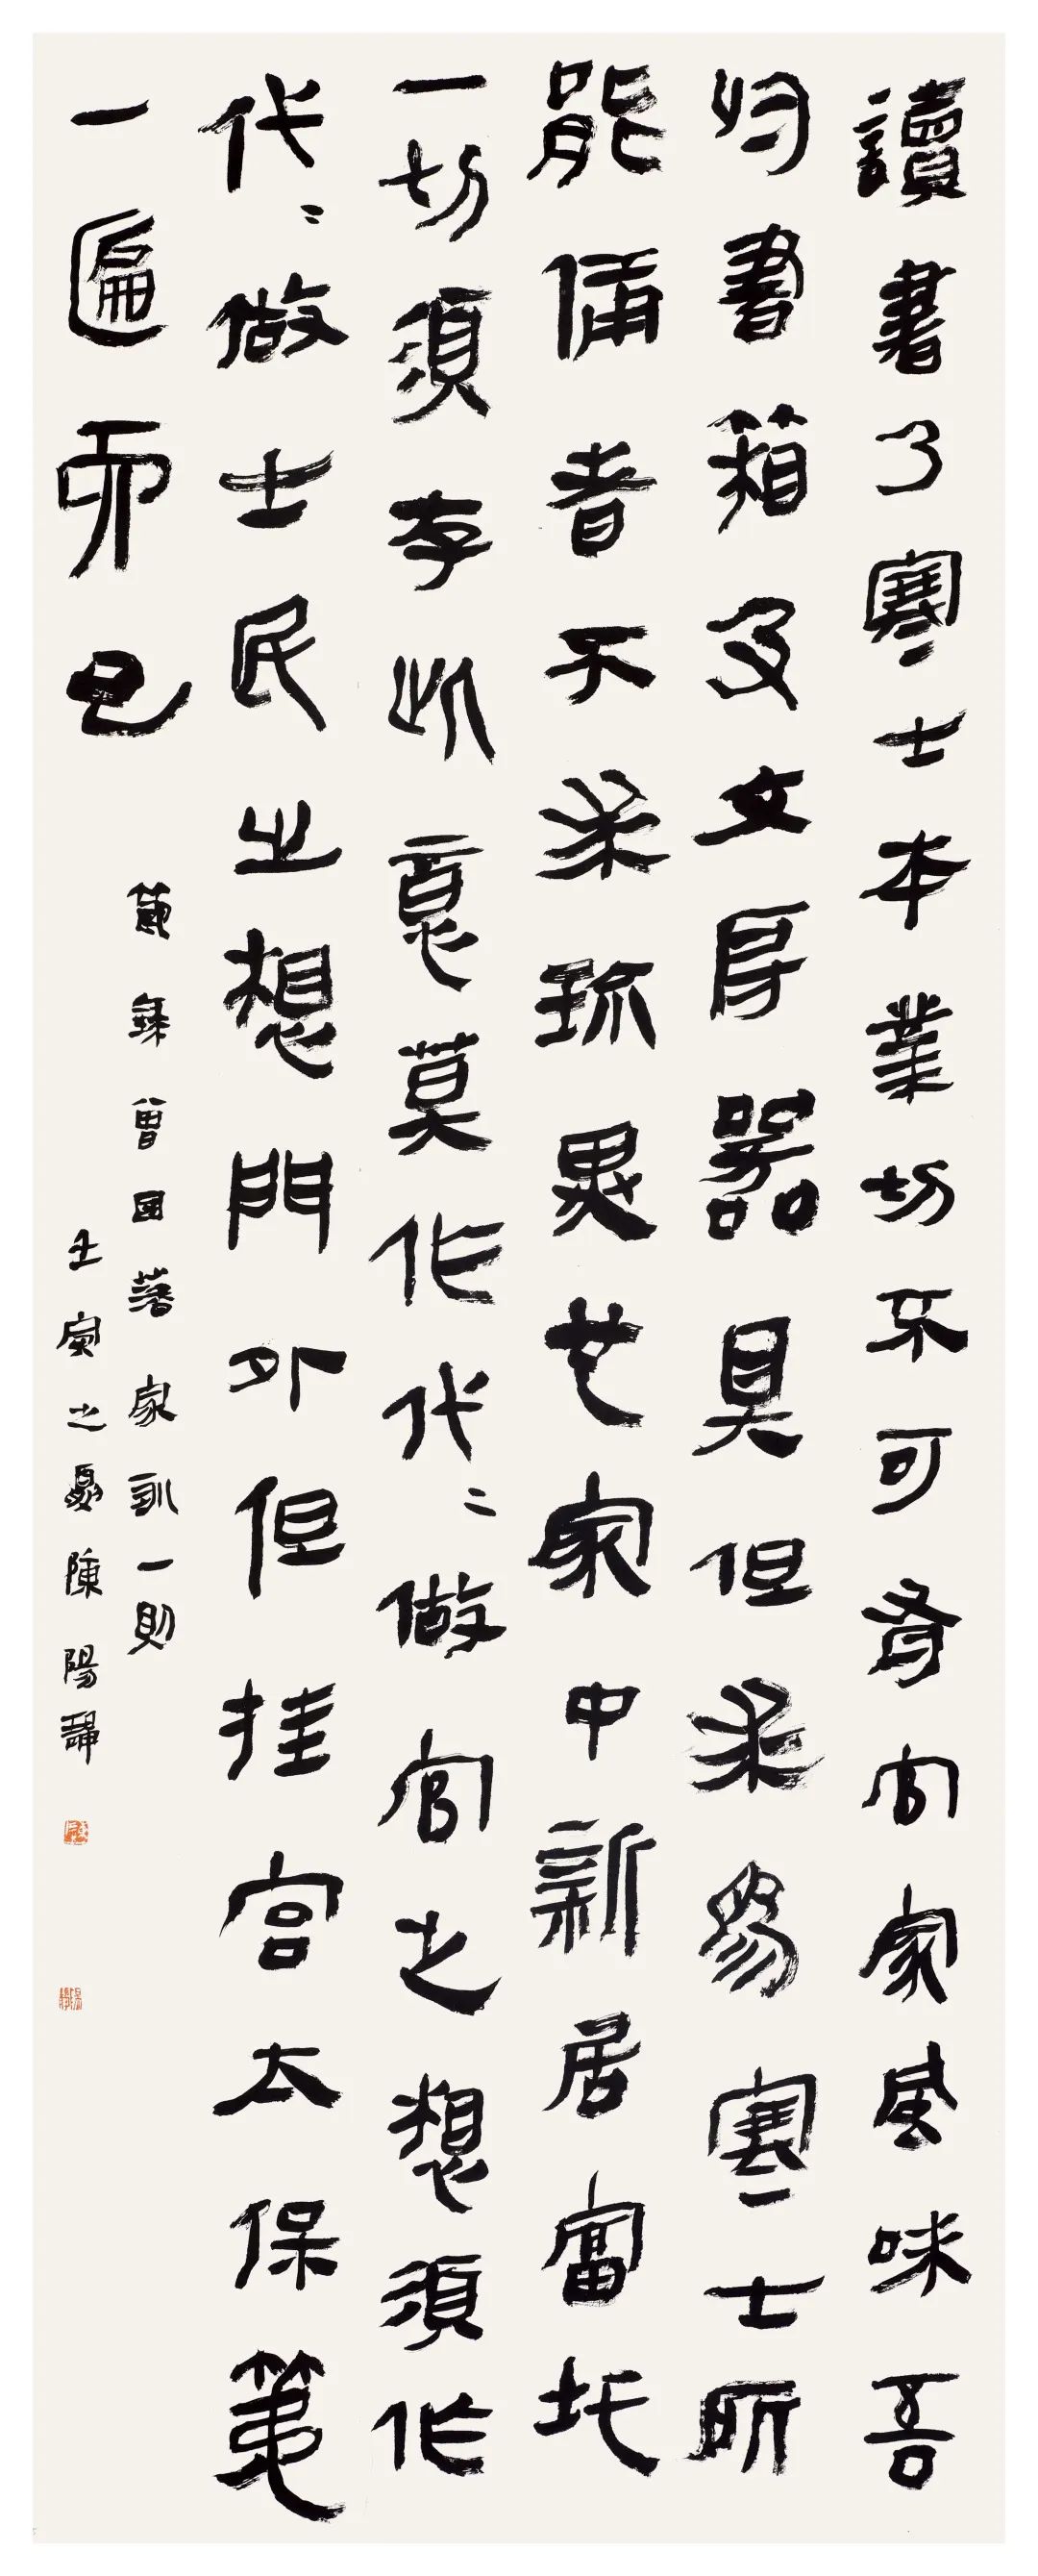 讀書乃寒士本業切不可有官家風味吾
於書箱及文房器具但求為寒士所
能備者不求珎異也家中新居富圫
一切須存此意莫作代〻做官之想須作
代〻做士民之想門外但挂宮太保第
一匾而已
節錄曾國藩家訓一則
壬寅之夏陳陽靜